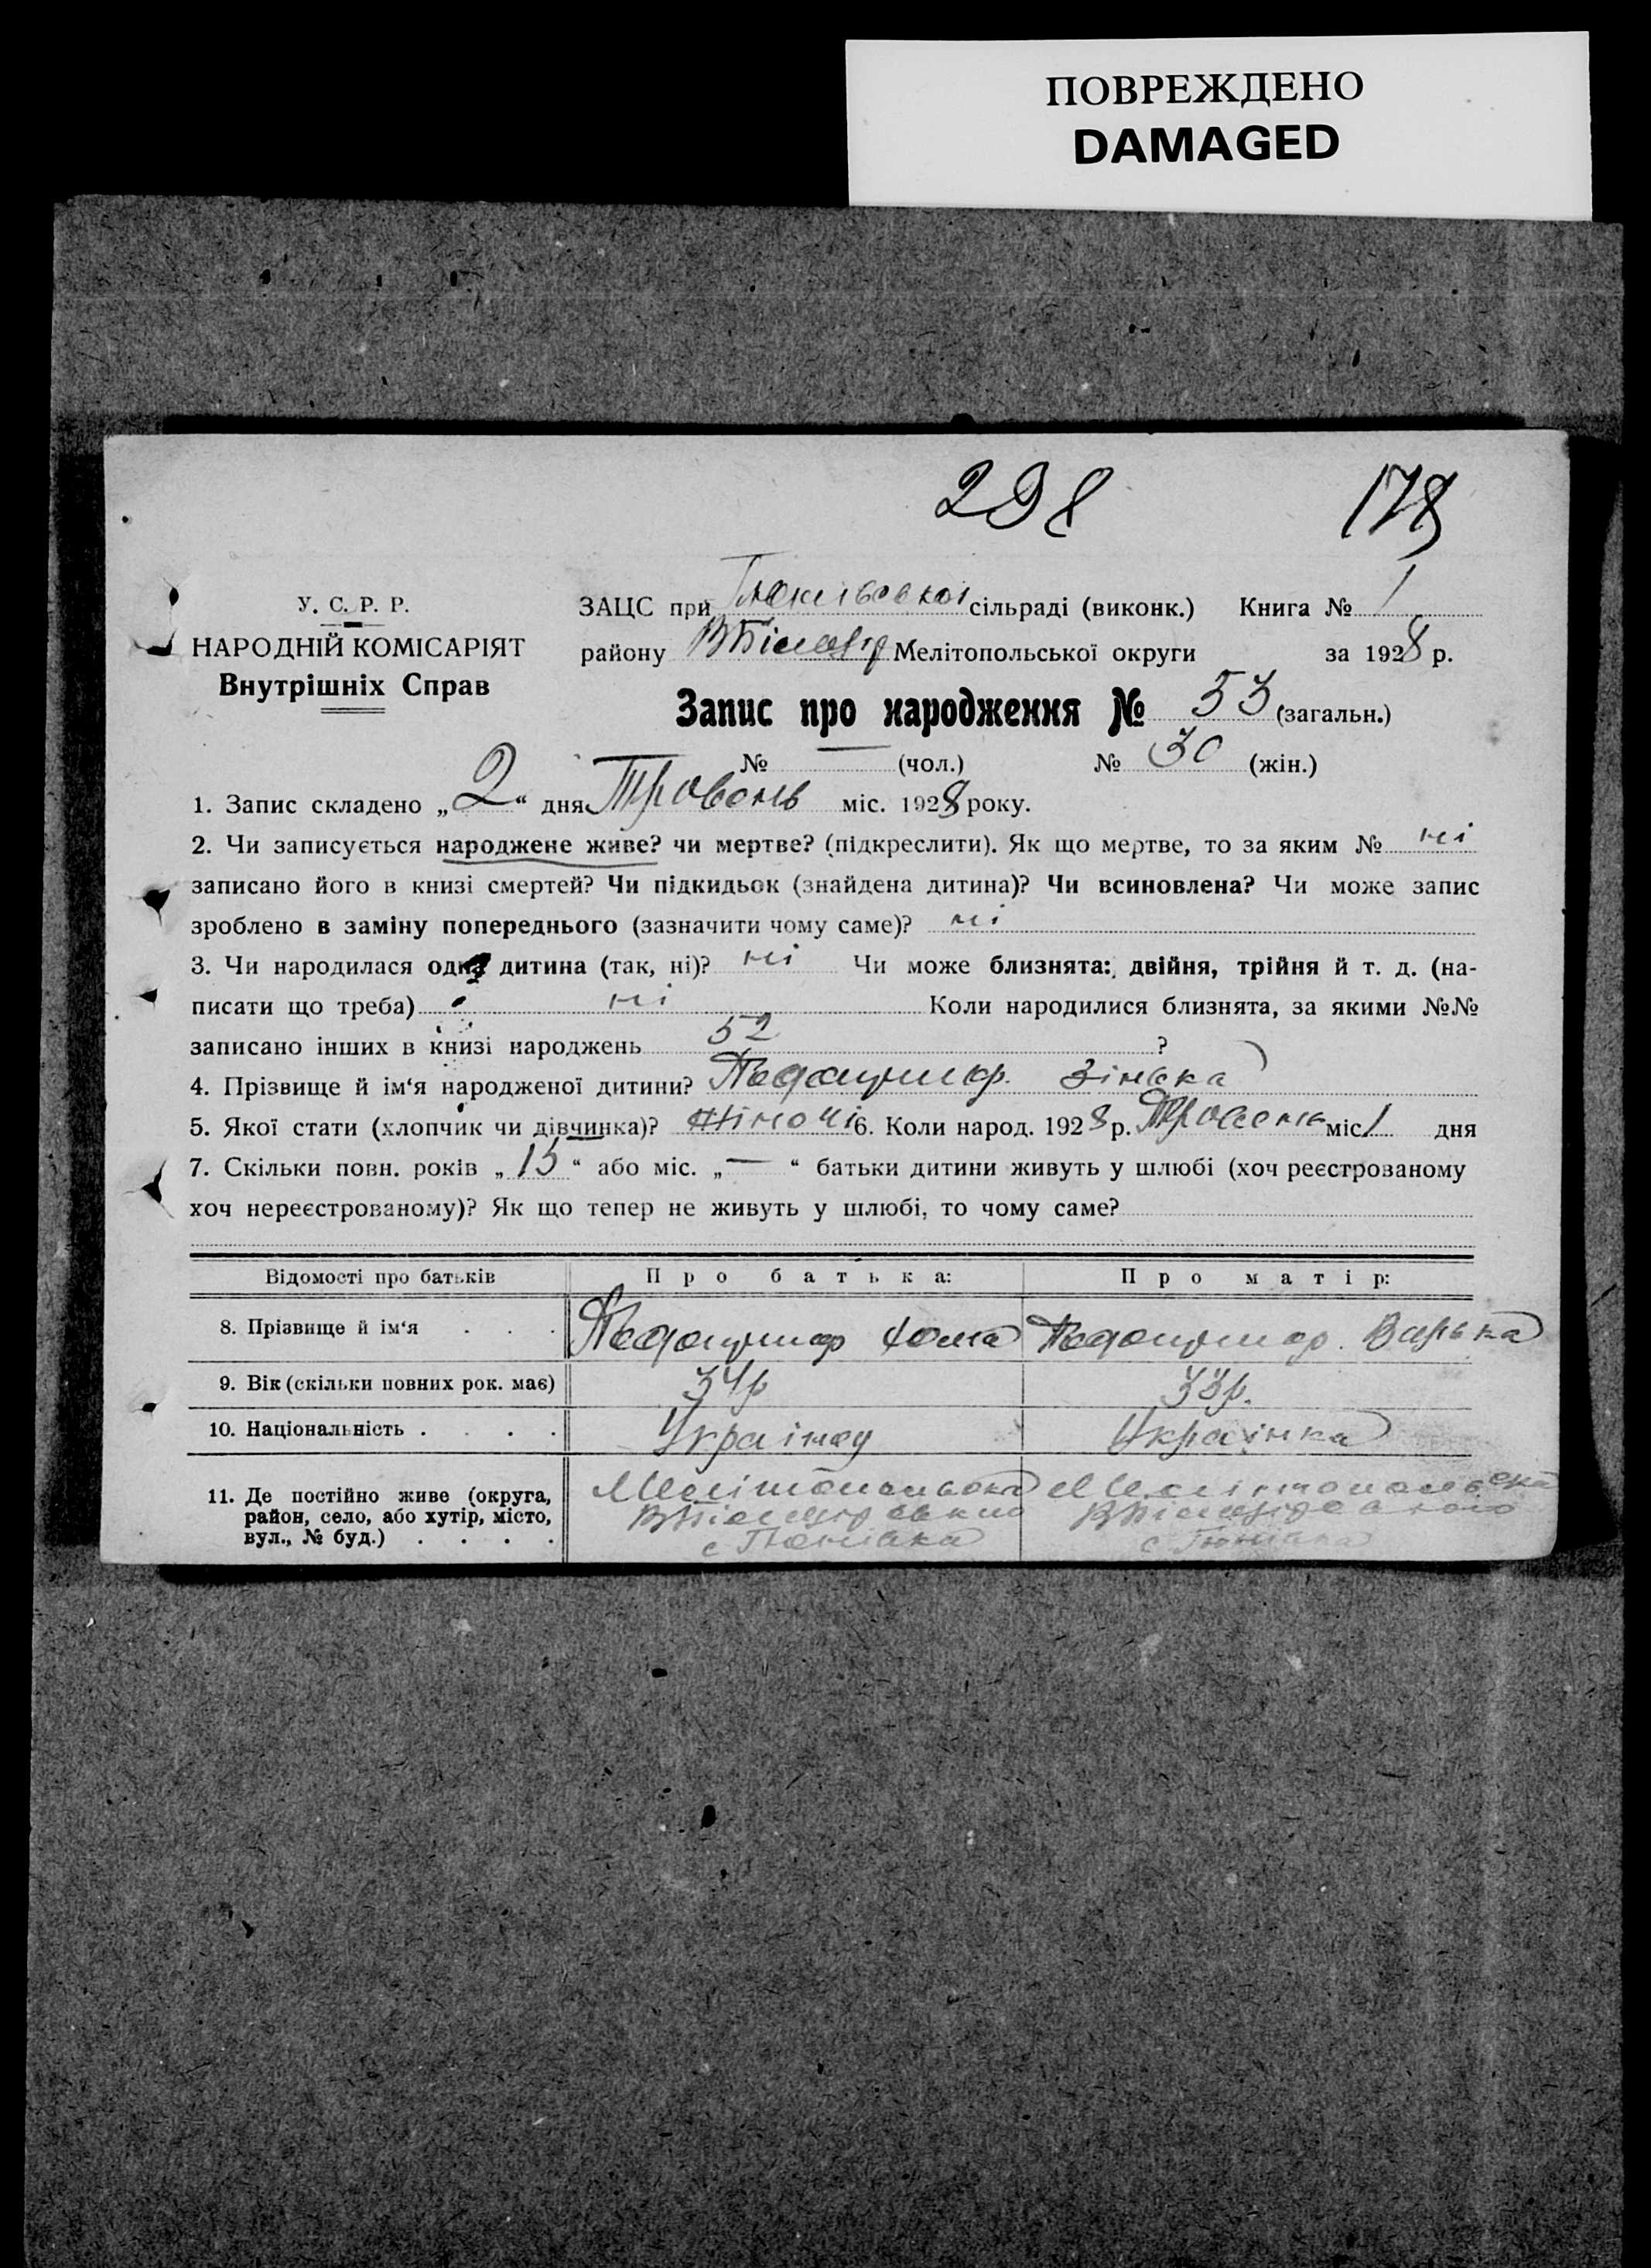 ПОВРЕЖДЕНО
DAMAGED
298 178
У. С. Р. Р.
НАРОДНІЙ КОМІСАРІЯТ
Внутрішніх Справ
ЗАЦС при сільраді (виконк.) Книга № 1
району Мелітопольської округи за 1928 р.
Запис про народження № 53 (загальн.)
№ — (чол.) № 30 (жін.)
1. Запис складено „2“ дня Тровень міс. 1928 року.
2. Чи записується народжене живе? чи мертве? (підкреслити). Як що мертве, то за яким № ні
записано його в книзі смертей? Чи підкидьок (знайдена дитина)? Чи всиновлена? Чи може запис
зроблено в заміну попереднього (зазначити чому саме)? ні
3. Чи народилася одна дитина (так, ні)? ні Чи може близнята: двійня, трійня й т. д. (на-
писати що треба) ні Коли народилися близнята, за якими №№
записано інших в книзі народжень 52 ?
4. Прізвище й ім‘я народженої дитини? Зінька
5. Якої стати (хлопчик чи дівчинка)? жіночі 6. Коли народ. 1928 р. міс. 1 дня
7. Скільки повн. років „15“ або міс. „—“ батьки дитини живуть у шлюбі (хоч реєстрованому
хоч нереєстрованому)? Як що тепер не живуть у шлюбі, то чому саме?
Відомості про батьків Про батька: Про матір:
8. Прізвище й ім‘я . . . Хома Варька
9. Вік (скільки повних рок. має) 34р 33р.
10. Національність . . . . Українец Українка
11. Де постійно живе (округа,
район, село, або хутір, місто,
вул., № буд.) . . . .
Мелітопольська
с Тюнівка с Тюнівка